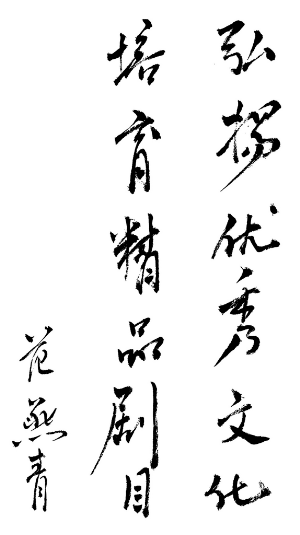 弘扬优秀文化
培育精品剧目
范燕青